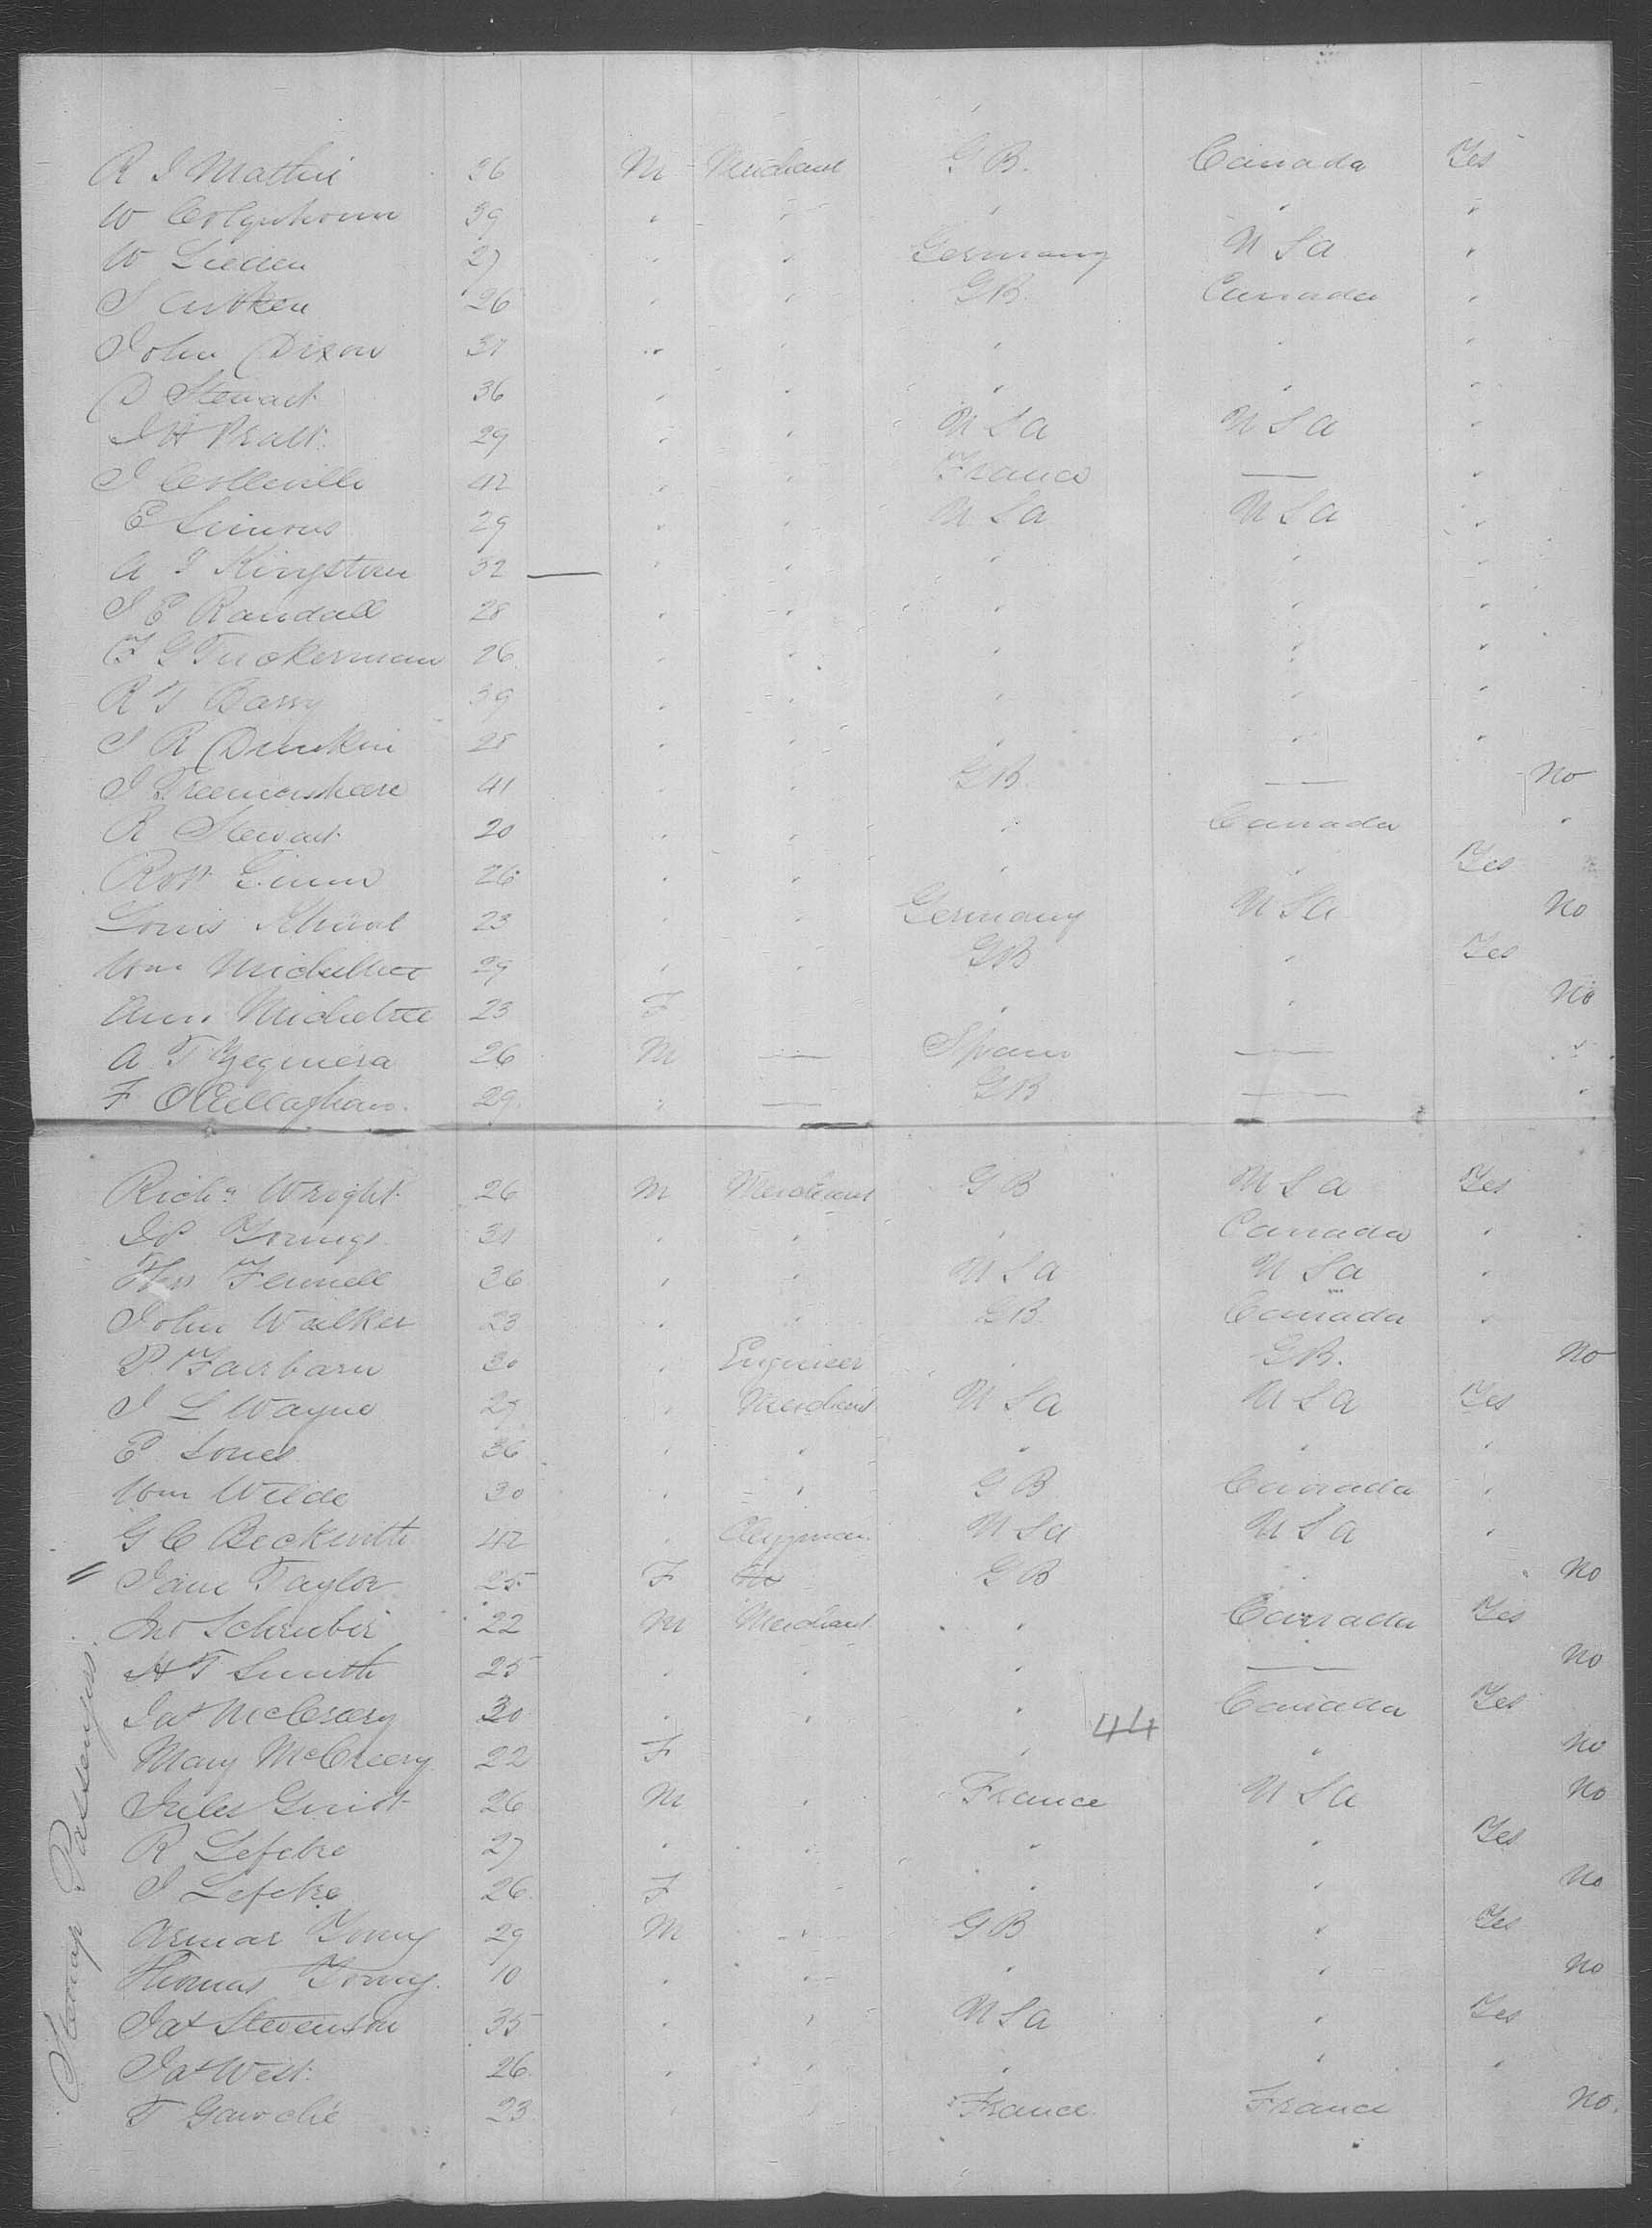 R J Mathie 36 M Merchant G B. Canada Yes
W Colquhoun 39 " " " " "
W 27 " " Germany U S A "
J Aitken 26 " " G B. Canada "
John Dixon 31 " " " " "
D Stewart 36 " " " " "
J H Pratt 29 " " U S A U S A "
J Colleville 42 " " France — "
E Simons 29 " " U S A U S A "
A J Kingstone 32 — " " " " "
J E Randall 28 " " " " "
F G Tuckerman 26 " " " " "
R T Barry 39 " " " " "
J R Dunkin 28 " " " " "
J 41 " " G B. — No
R Stewart 20 " " " Canada "
Robt 26 " " " " Yes
Louis 23 " " Germany U S A No
Wm 29 " " G B " Yes
Ann 23 F " " No
A T 26 M — Spain — "
F O'Callaghan 29 " — G B — "
Richd Wright 26 M Merchant G B U S A Yes
Youngs 31 " " " Canada "
Thos Fennell 36 " " U S A U S A "
John Walker 23 " " G B. Canada "
P. Fairbarn 30 " Engineer " G B. No
J L Wayne 27 " Merchant U S A U S A Yes
E Jones 36 " " " " "
Wm Wilde 30 " " G B Canada "
G C Beckwith 42 " Clergyman U S A U S A "
Jane Taylor 25 F G B " No
Jno Schreiber 22 M Merchant " Canada Yes
H T Smith 25 " " " — No
Jas McCreery 30 " " " Canada Yes
44
Mary McCreery 22 F " " No
Jules 26 M " France U S A No
R Lefebre 27 " " " " Yes
J Lefebre 26 F " " No
Young 29 M " G B " Yes
Thomas Young 10 " " " " No
Jas Stevenson 35 " " U S A " Yes
Jas West 26 " " " " "
T 23 " " France France No.
Steerage Passengers